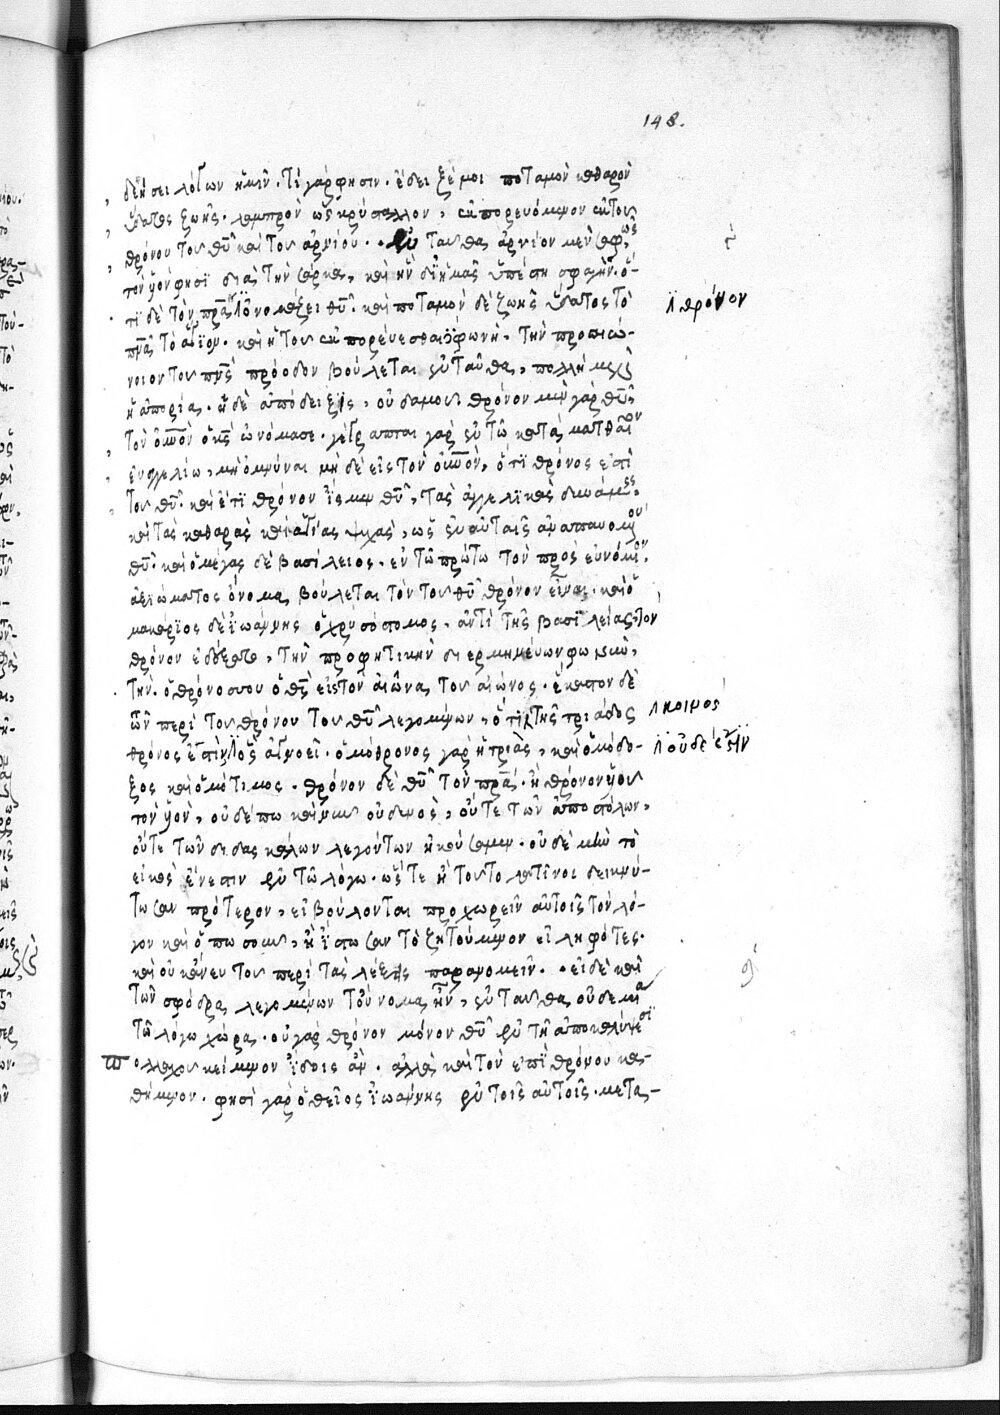 148.
δεήσει λόγων ἡμῖν. τί γάρ φησιν. ἔδειξέ μοι ποταμὸν καθαρὸν
ὕδατος ζωῆς. λαμπρὸν ὡς κρύσταλλον, ἐκπορευόμενον ἐκ τοῦ
θρόνου τοῦ θυ καὶ τοῦ ἀρνίου. ἐνταῦθα ἀρνίον μὲν σαφῶς
τὸν υἱόν φησι διὰ τὴν σάρκα, καὶ ἣν δι ἡμᾶς ὑπέστη σφαγήν. ὅ-
τι δὲ τὸν πρα ὀνομάζει θυ. καὶ ποταμὸν δὲ ζωῆς ὕδατος τὸ
λ θρόνον
πνα τὸ ἅγιον. καὶ ἡ τοῦ ἐκπορεύεσθαι φωνὴ. τὴν προαιώ-
νιον τοῦ πνς πρόοδον βούλεται ἐνταῦθα, πολλῆ
ἡ ἀπορία. ἡ δὲ ἀπόδειξις, οὐδαμοῦ. θρόνον μὲν γὰρ θυ
τὸν οὐνον ὁ κς ὠνόμασε. γέγραπται γὰρ ἐν τῶ κατὰ ματθαῖον
εὐαγγελίω, μὴ ὀμνύναι μηδὲ εἰς τὸν οὐνον, ὅτι θρόνος ἐστὶ
τοῦ θυ. καὶ ἔτι θρόνον ἴσμεν θυ, τὰς ἀγγελικὰς δυνάμεις.
καὶ τὰς καθαρὰς καὶ ἁγίας ψυχάς, ὡς ἐν αὐταῖς ἀναπαυομένου
θυ. καὶ ὁ μέγας δὲ βασίλειος. ἐν τῶ πρώτω τῶν πρὸς εὐνόμιον.
ἀξιώματος ὄνομα, βούλεται τὸν τοῦ θυ θρόνον εἶναι. καὶ ὁ
μακάριος δὲ ἰωάννης ὁ χρυσόστομος, ἀντὶ τῆς βασιλείας τὸν
θρόνον ἐδέξατο, τὴν προφητικὴν διερμηνεύων φωνὴν,
τὴν. ὁ θρόνος σου ὁ θς εἰς τὸν αἰῶνα τοῦ αἰῶνος. ἕκαστον δὲ
ὧν περὶ τοῦ θρόνου τοῦ θυ λεγομένων, ὅτι τῆς τριάδος
λ κοινός
θρόνος ἐστὶν τίς ἀγνοεῖ. ὁμόθρονος γὰρ ἡ τριὰς, καὶ ὁμόδο-
λ οὐδέ ἐστϊν
ξος καὶ ὁμότιμος. θρόνον δὲ θυ τὸν πρα. ἢ θρόνον
τὸν υἱόν, οὐδέπω καὶ νῦν οὐδενὸς, οὔτε τῶν ἀποστόλων,
οὔτε τῶν διδασκάλων λεγόντων ἠκούσαμεν. οὐδὲ μὴν τὸ
εἰκὸς ἔνεστιν ἐν τῶ λόγω. ὥστε ἢ τοῦτο λατῖνοι δεικνύ-
τωσαν πρότερον, εἰ βούλονται προχωρεῖν αὐτοῖς τὸν λό-
γον καὶ ὁπωσοῦν, ἢ ἴστωσαν τὸ ζητούμενον εἰληφότες.
καὶ οὐκ ἄνευ τοῦ περὶ τὰς λέξεις παρανομεῖν. εἰ δὲ καὶ
τῶν σφόδρα λεγομένων τοὔνομα ἦν, ἐνταῦθα οὐδεμία
τῶ λόγω χώρα. οὐ γὰρ θρόνον μόνον θυ ἐν τῆ ἀποκαλύψει
πολλαχοῦ κείμενον ἴδοις ἄν. ἀλλὰ καὶ τὸν ἐπὶ θρόνου κα-
θήμενον. φησὶ γὰρ ὁ θεῖος ἰωάννης ἐν τοῖς αὐτοῖς. μετὰ-